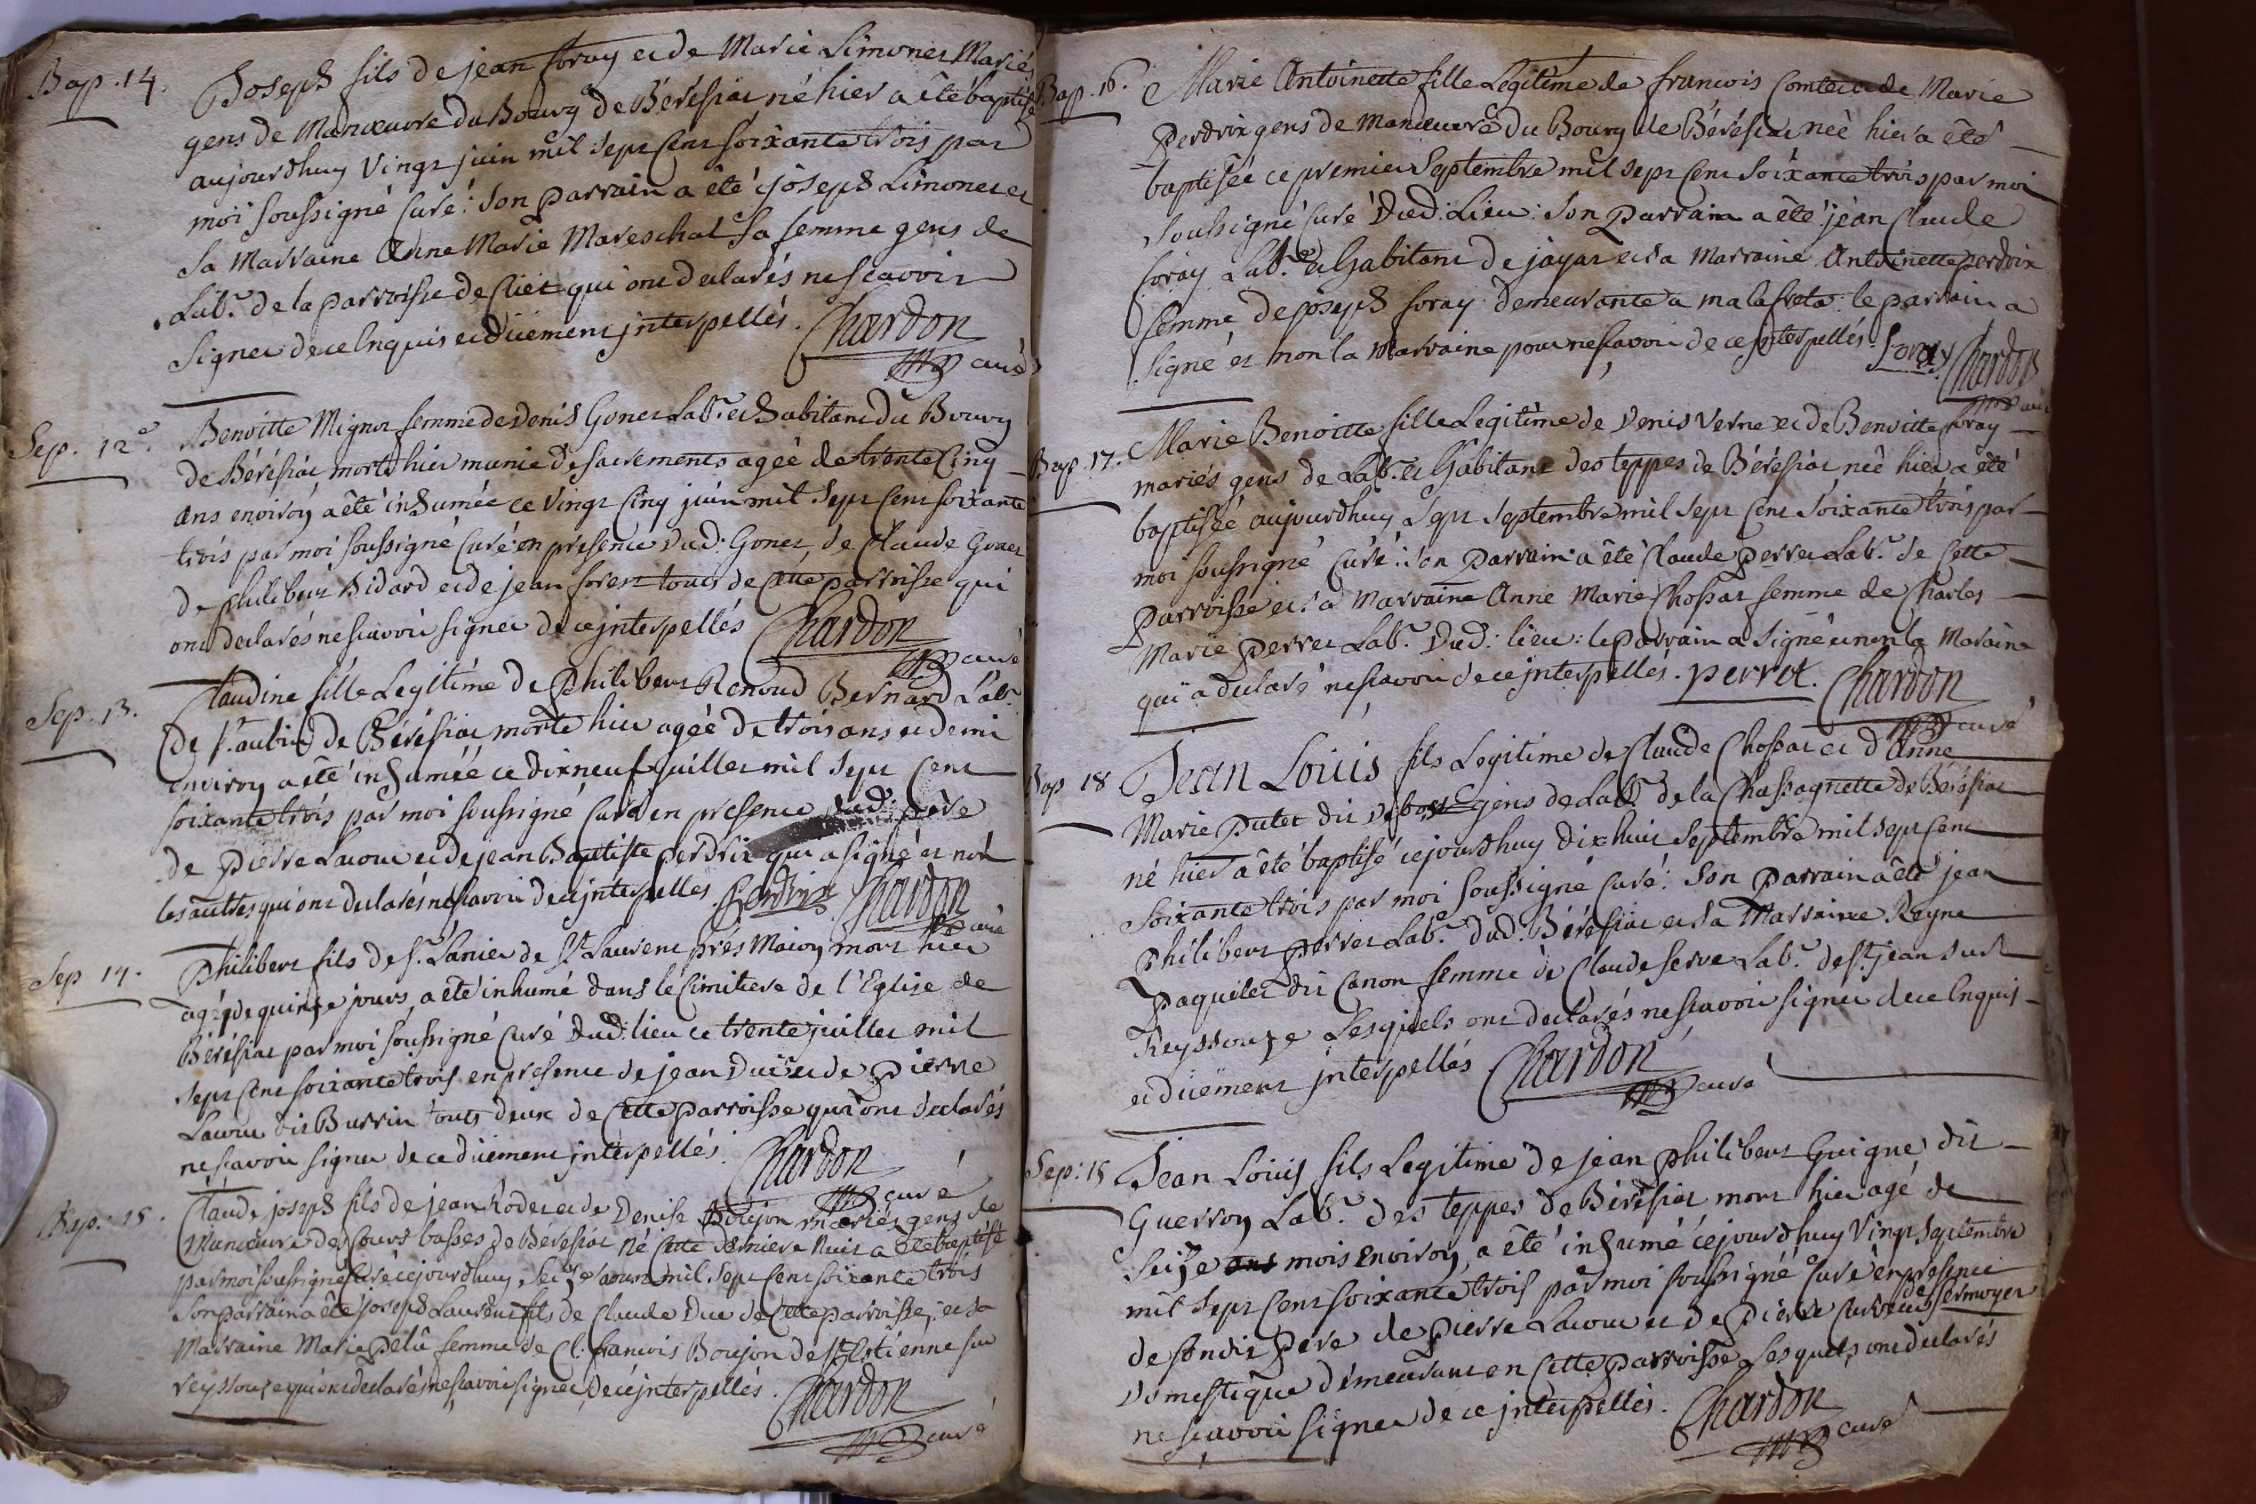 Bap. 14. Joseph fils de jean foray et de Marie Limonet Mariés
gens de Manœuvre du Bourg de BéréSiat né hier a été baptisé
aujourdhuy Vingt juin mil Sept Cent soixante trois par
moi soussigné Curé: Son parrain a été joseph Limonet et
Sa Marraine Anne Marie Mareschal Sa femme gens de
Lab.r de la parroisse de Ciiet qui ont declarés ne scavoir
Signer de ce Enquis et düement jnterpellés. Chardon
curé
Sep. 12e. Benoitte Mignot femme de Denis Gonet Lab.r et habitant du Bourg
de BéréSiat, morte hier munie de sacrements agée de trente Cinq
ans environ, a été inhumée ce Vingt Cinq juin mil Sept Cent soixante
trois par moi soussigné Curé en presence dud: Gonet, de Claude Gonet
de philibert Bidard et de jean forest touts de Cette parroisse qui
ont declarés ne scavoir signer de ce jnterpellés Chardon
curé
Sep. 13. Claudine fille Legitime de philibert Renoud Bernard Lab.r
de St. aubin de BéréSiat morte hier agée de trois ans et demi
environ a été inhumée ce dix neuf juillet mil Sept Cent
soixante trois par moi soussigné Curé en presence dud: père
de pierre Lacour et de jean Baptiste perdrix qui a signé et non
les autres qui ont declarés ne scavoir de ce jnterpelles. Perdrix Chardon
curé
Sep 14. Philibert fils de Sr. Lanier de St Laurent près Macon, mort hier
agé de quinze jours, a été inhumé dans le Cimitiere de l'Eglise de
BéréSiat par moi soussigné Curé dud: lieu ce trente juillet mil
Sept Cent soixante trois en presence de jean Duc et de pierre
Lacour dit Burrin touts deux de Cette parroisse qui ont declarés
ne scavoir signer de ce düement jnterpellés. Chardon
curé
Bap. 15. Claude joseph fils de jean Rodet et de Denise Boujon mariés gens de
Manœuvre des Cours basses de BéréSiat né Cette derniere Nuit a été baptisé
par moi soussigné Curé cejourdhuy Seize aoust mil Sept Cent soixante trois
Son parrain a été joseph Laurent fils de Claude Duc de Cette parroisse; et sa
Marraine Marie pelû femme de Cl: francois Boujon de St Estienne sur
reyssouze qui ont declarés ne scavoir signer de ce jnterpellés. Chardon
curé
Bap. 16. Marie Antoinette fille Legitime de francois Comte et de Marie
Perdrix gens de manœuvre du Bourg de BéréSiat neé hier a été
baptisée ce premier Septembre mil sept Cent Soixante trois par moi
Soussigné Curé dud: Lieu: Son Parrain a été jean Claude
foray Lab.r et habitant de jayat et sa Marraine Antoinette perdrix
femme de joseph foray demeurante a malafreta: le parrain a
Signé et non la Marraine pour ne scavoir de ce jnterpellés. Foray. Chardon
curé
Bap. 17. Marie Benoitte fille Legitime de Denis Verne et de Benoitte foray
mariés gens de Lab.r et habitant des teppes de BéréSiat neé hier a été
baptisée aujourdhuy Sept Septembre mil Sept Cent Soixante trois par
moi soussigné Curé: Son parrain a été Claude perret Lab.r de Cette
parroisse et sa Marraine Anne Marie Chossat femme de Charles
Marie perret Lab.r dud: lieu: le parrain a Signé et non la Maraine
qui a declaré ne scavoir de ce jnterpellés. perret. Chardon
curé
Bap 18 Jean Louis fils Legitime de Claude Chossat et d'Anne
Marie Putet dit gens de Lab.r de la Chassagnette de BéréSiat
né hier a été baptisé cejourdhuy dix huit Septembre mil Sept Cent
Soixante trois par moi Soussigné Curé: Son Parrain a été jean
Philibert perret Lab.r dud: BéréSiat et sa Marraine Reyne
Paquelet dit Canon femme de Claude Serve Lab.r de St jean Sur
Reyssouze Lesquels ont declarés ne scavoir signer de ce Enquis
et düement jnterpellés Chardon
curé
Sep: 15 Jean Louis fils Legitime de jean philibert Guigue dit
Guerron Lab.r des teppes de BéréSiat mort hier agé de
Seize ans mois environ, a été inhumé cejourdhuy Vingt Septembre
mil Sept Cent soixante trois par moi soussigné Curé en presence
de sondit père de pierre Lacour et de pierre de sermoyer
domestique démeurant en Cette parroisse Lesquels ont declarés
ne scavoir signer de ce jnterpellés. Chardon
curé